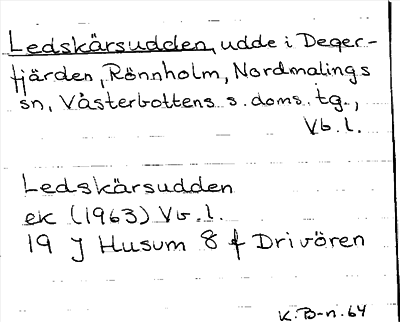 Ledskärsudden, udde i Deger-
fjärden, Rönnholm, Nordmalings
sn, Västerbottens s. doms. tg.,
Vb. l.
Ledskärsudden
ek (1963) Vb. l.
19 J Husum 8 f Drivören
K. B-n. 64